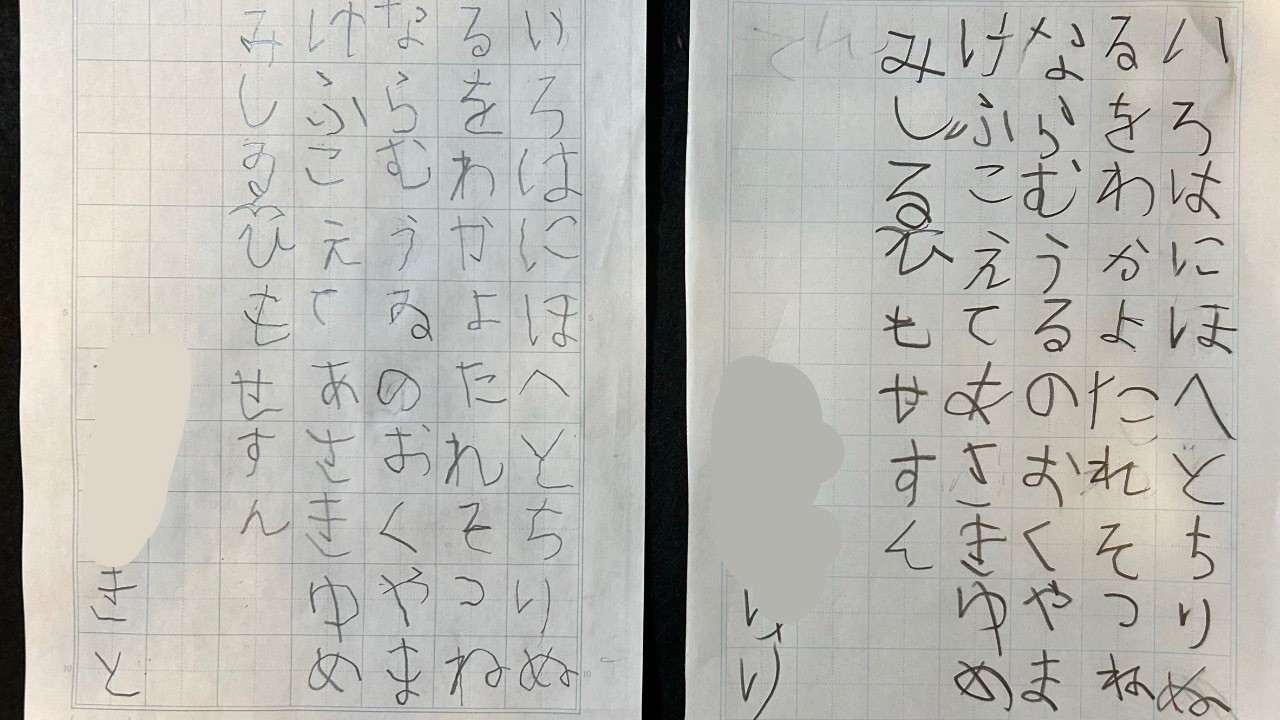 いろはにほへとちりぬ
るをわかよたれそつね
ならむうゐのおくやま
けふこえてあさきゆめ
みしゑひもせすん
きと
いろはにほへとちりぬ
るをわかよたれそつね
ならむうるのおくやま
けふこえてあさきゆめ
みしゑひもせすん